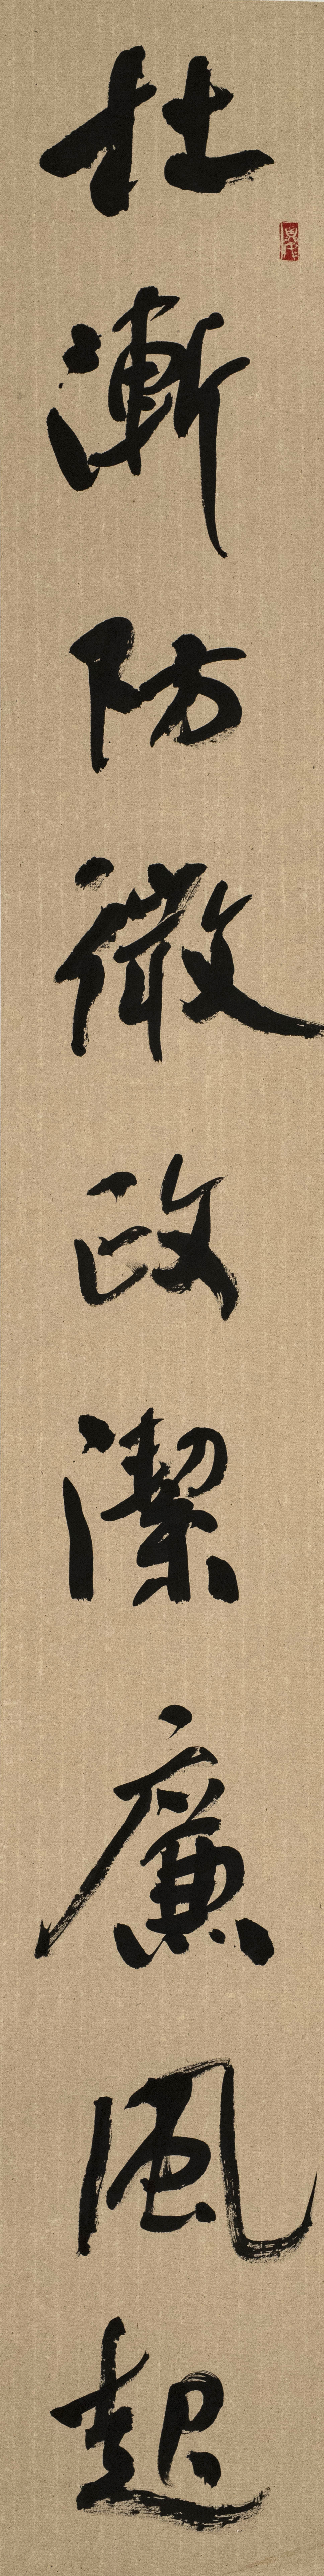 杜漸防微政潔廉風起